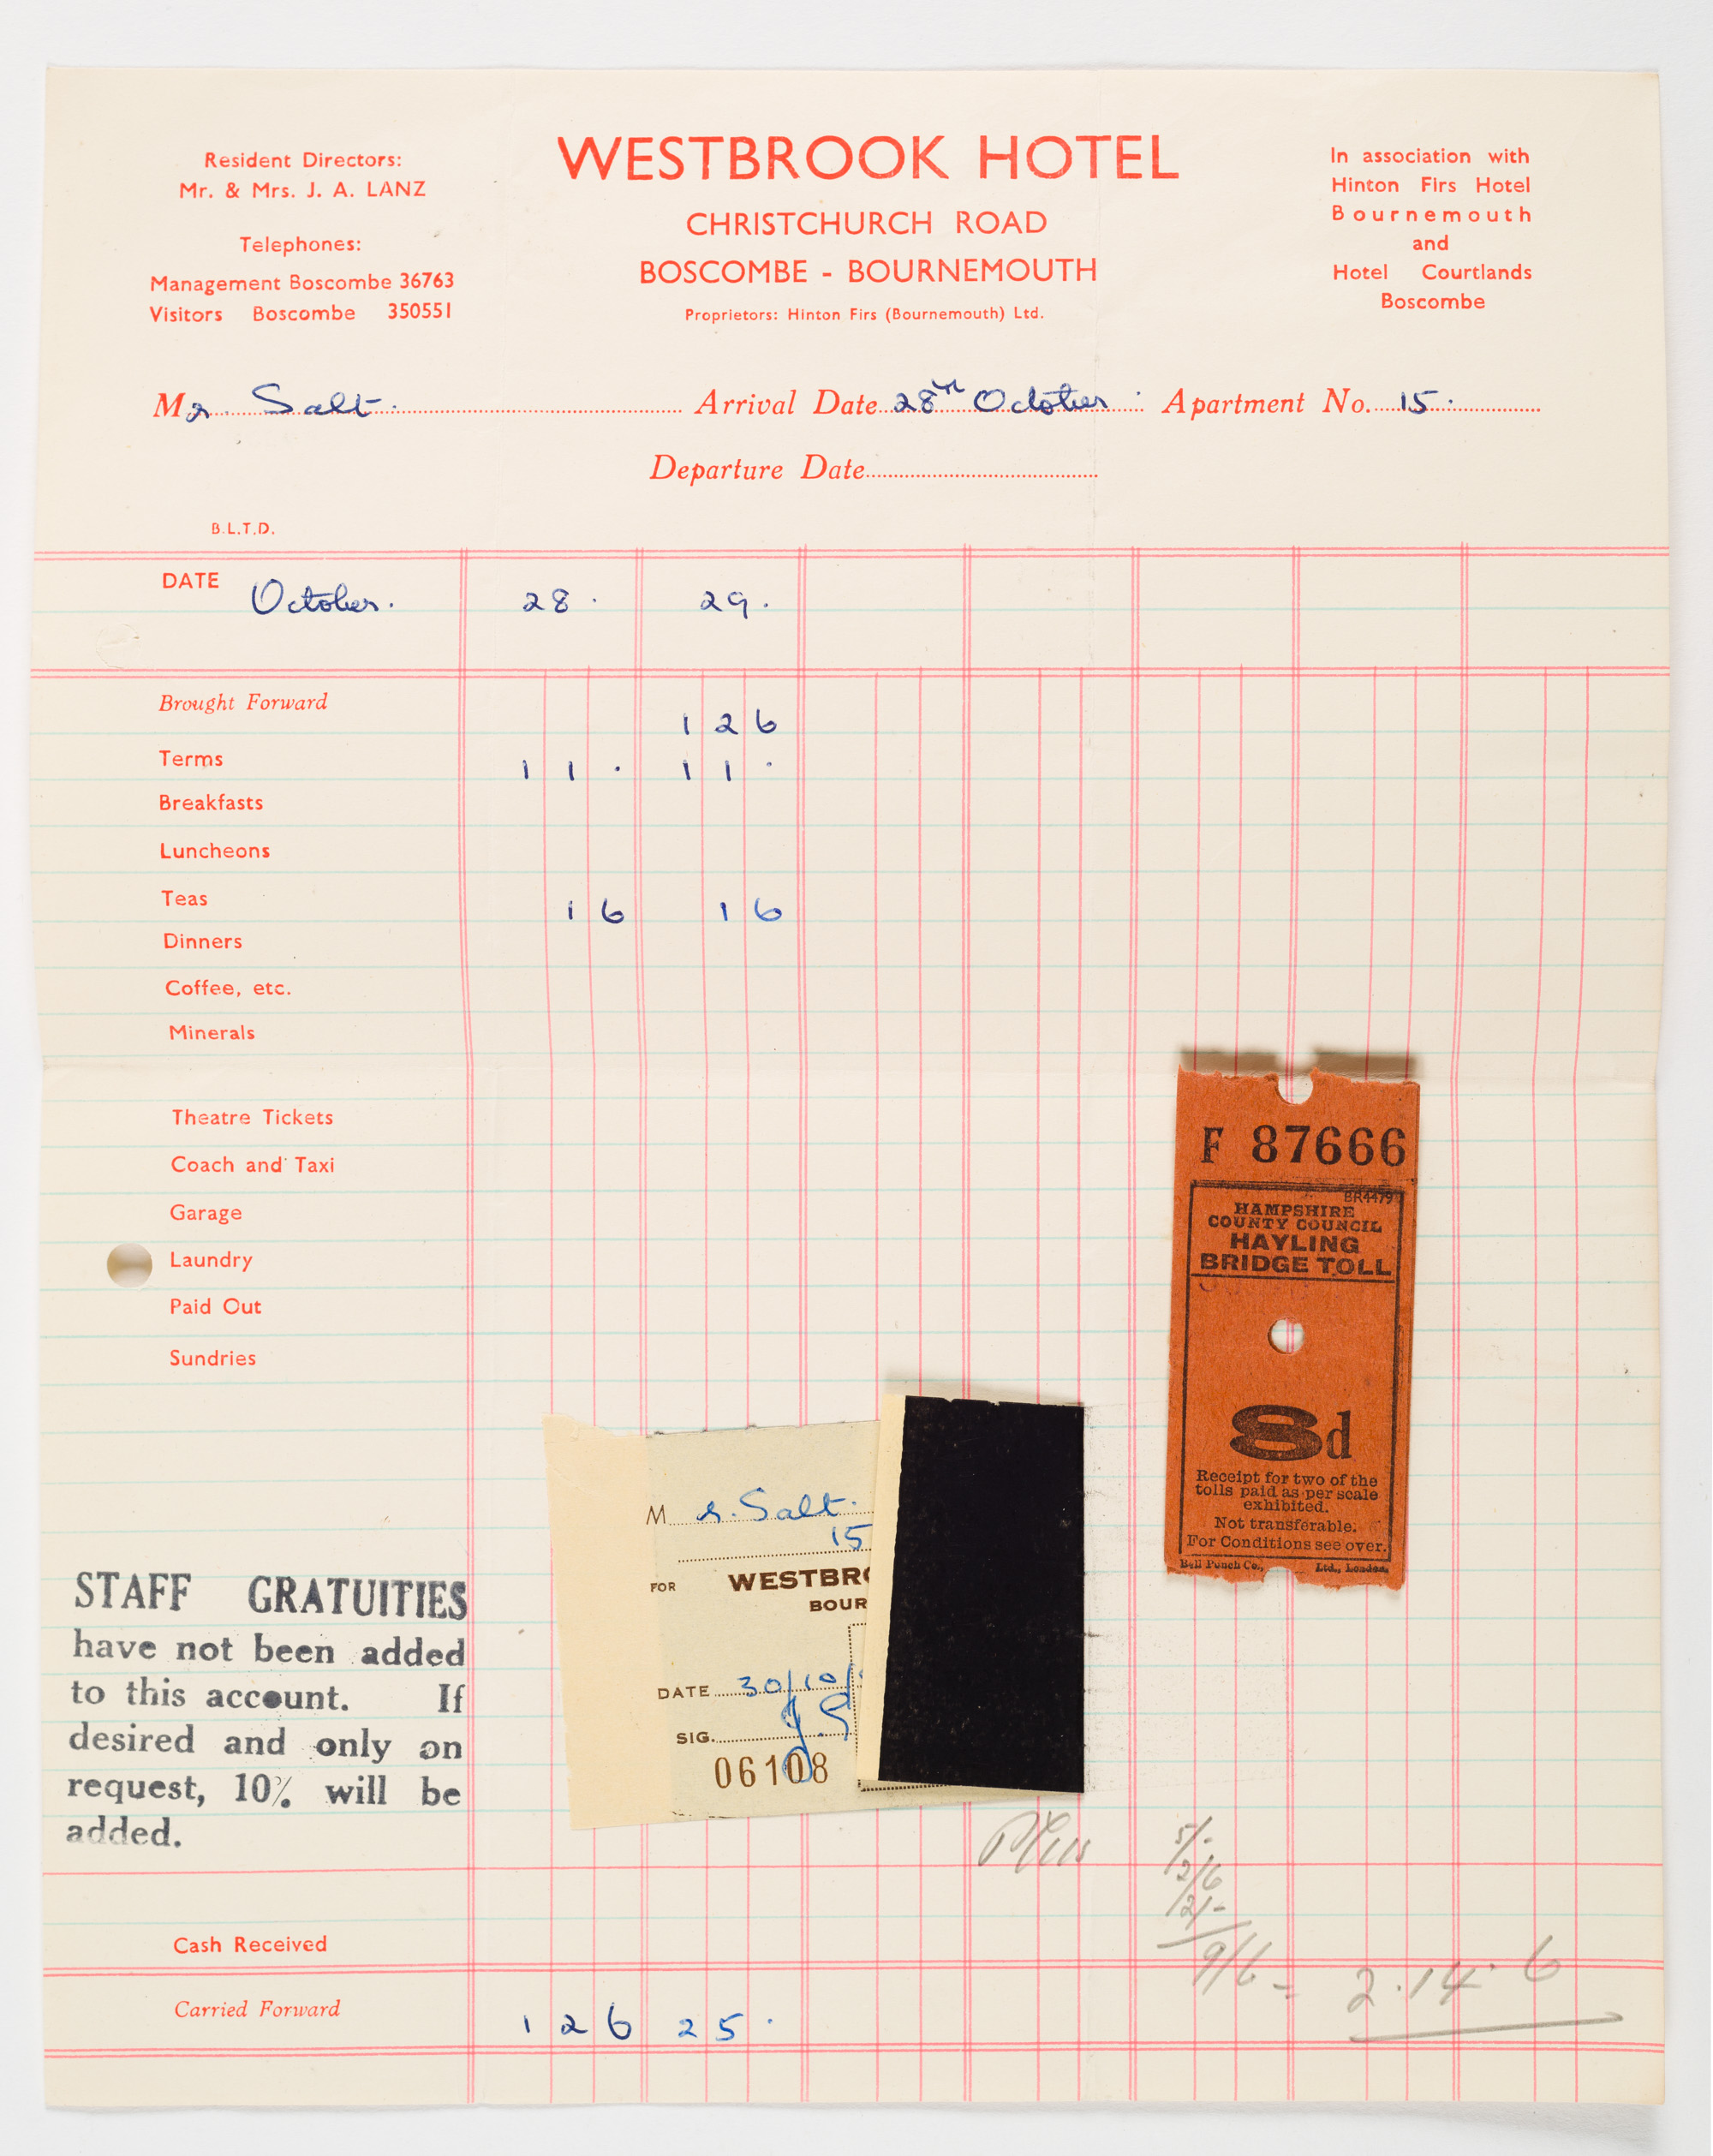 WESTBROOK HOTEL
CHRISTCHURCH ROAD
BOSCOMBE - BOURNEMOUTH
Proprietors: Hinton Firs (Bournemouth) Ltd.
Resident Directors:
Mr. & Mrs. J. A. LANZ
Telephones:
Management Boscombe 36763
Visitors Boscombe 350551
In association with
Hinton Firs Hotel
Bournemouth
and
Hotel Courtlands
Boscombe
Mr. Salt. Arrival Date 28th October Apartment No. 15.
Departure Date
B.L.T.D.
DATE October. 28. 29.
Brought Forward 1 2 6
Terms 1 1 . 1 1 .
Breakfasts
Luncheons
Teas 1 6 1 6
Dinners
Coffee, etc.
Minerals
Theatre Tickets
Coach and Taxi
Garage
Laundry
Paid Out
Sundries
F 87666
BR4479
HAMPSHIRE
COUNTY COUNCIL
HAYLING
BRIDGE TOLL
8d
Receipt for two of the
tolls paid as per scale
exhibited.
Not transferable.
For Conditions see over.
Bell Punch Co., Ltd., London.
Mr. Salt.
15
FOR WESTBRO
BOUR
DATE 30/10/
SIG.
06108
STAFF GRATUITIES
have not been added
to this account. If
desired and only on
request, 10% will be
added.
Plus 5/-
2/6
2/-
9/6 = 2.14.6
Cash Received
Carried Forward 1 2 6 2 5 .